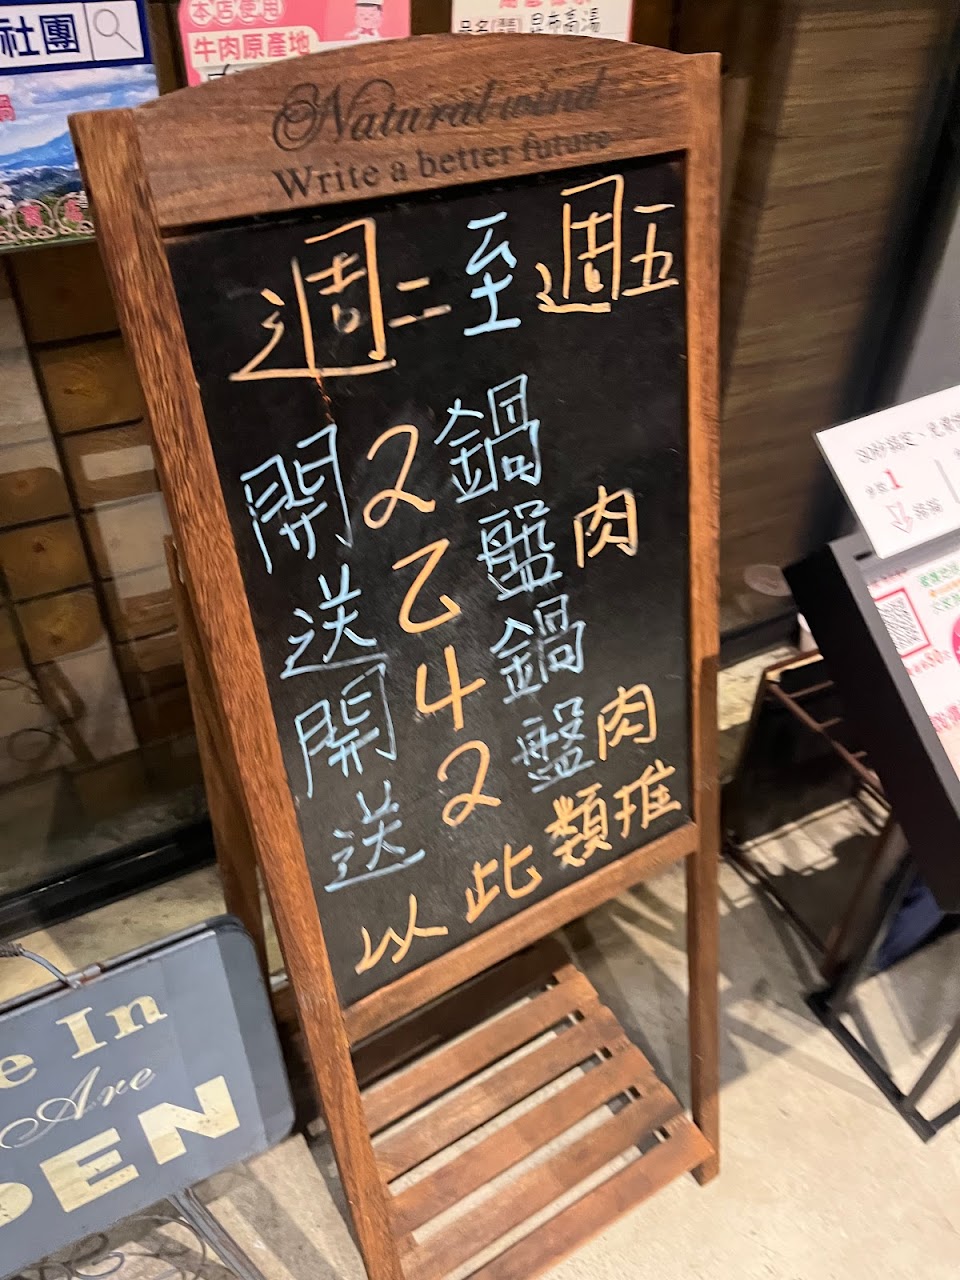 社團
本店使用
牛肉原產地
昆布高湯
Natural wind
Write a better future
週二至週五
開2鍋
送乙盤肉
開4鍋
送2盤肉
以此類推
1
e In
Are
PEN